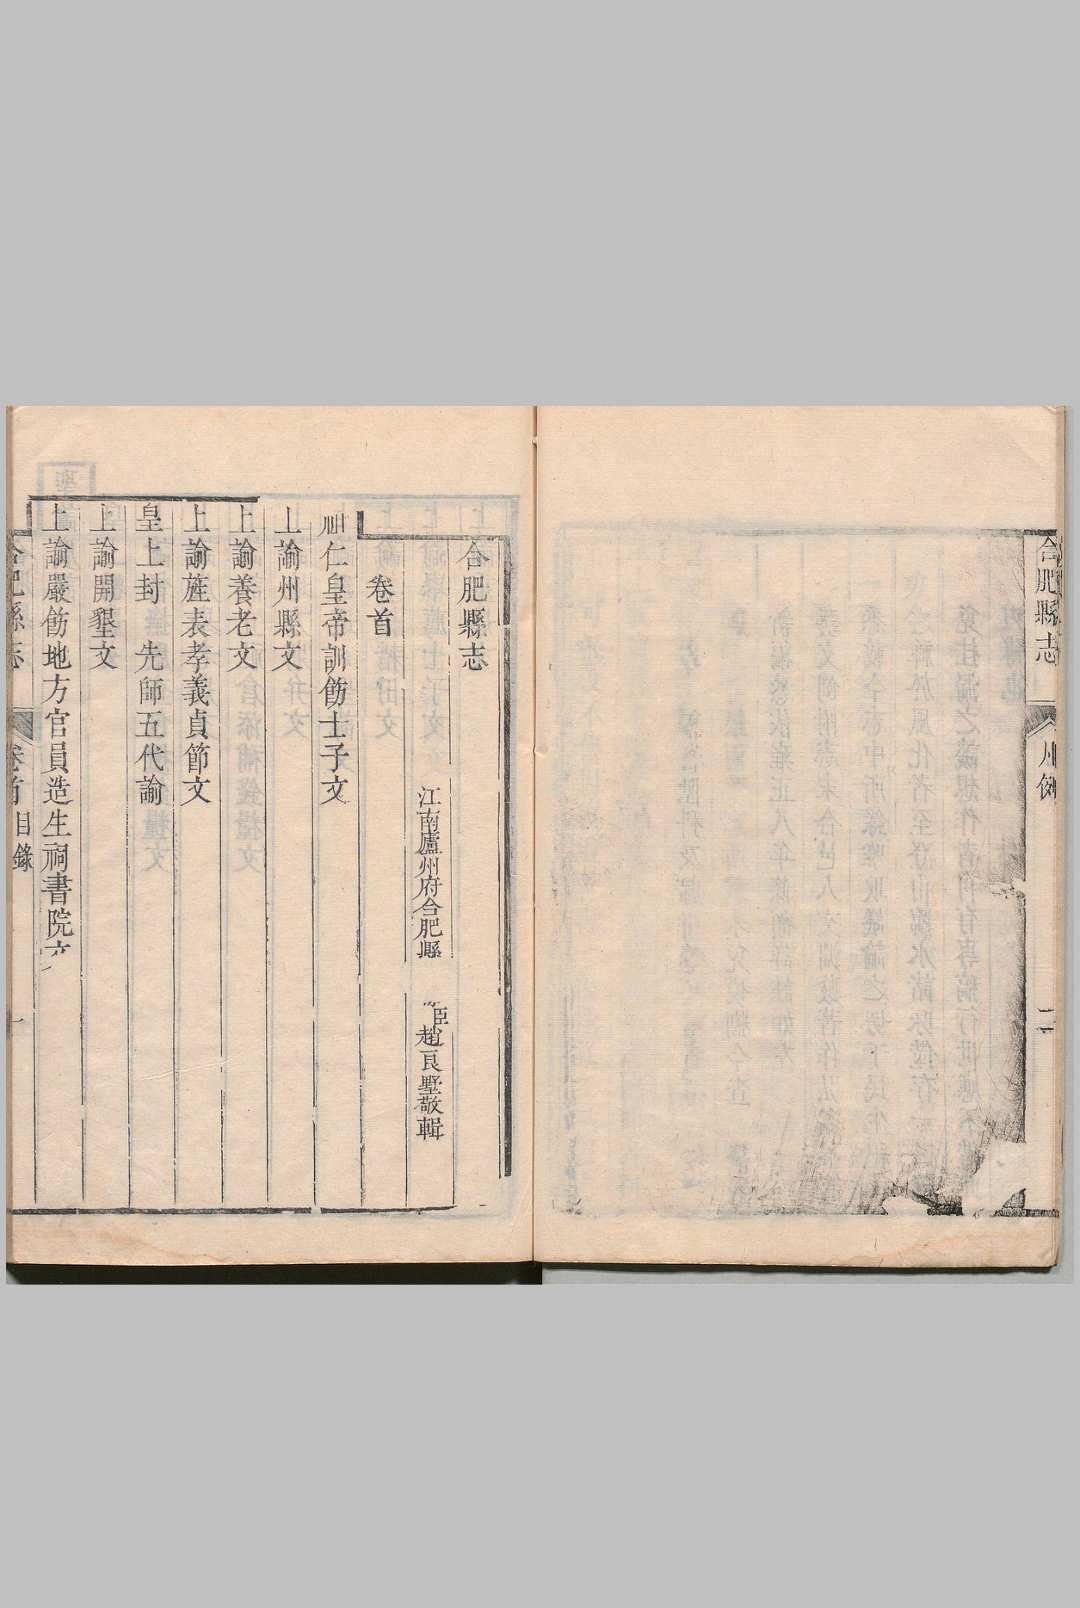 合肥縣志
二
合肥縣志
江南廬州府合肥縣 臣趙良墅敬輯
卷首
祖仁皇帝訓飭士子文
上諭州縣文
上諭養老文
上諭旌表孝義貞節文
皇上封 先師五代諭
上諭開墾文
上諭嚴飭地方官員造生祠書院文
合肥縣志 卷首 目錄 一